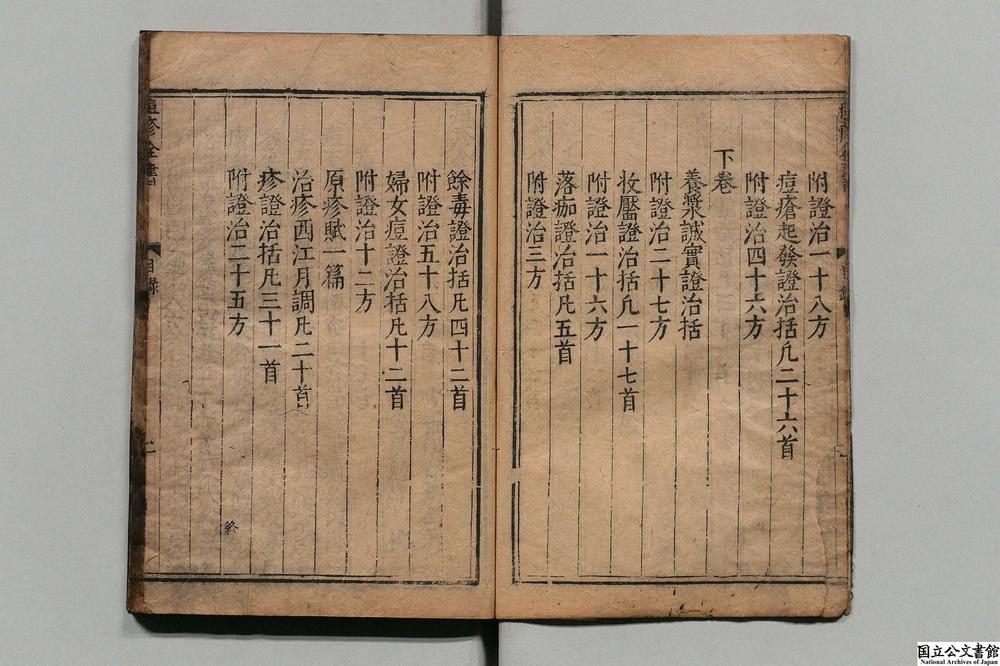 附證治一十八方
痘瘡起發證治括凡二十六首
附證治四十六方
下卷
養漿誠實證治括
附證治二十七方
妝靨證治括凡一十七首
附證治一十六方
落痂證治括凡五首
附證治三方
餘毒證治括凡四十二首
附證治五十八方
婦女痘證治括凡十二首
附證治十二方
原疹賦一篇
治疹西江月調凡二十首
疹證治括凡三十一首
附證治二十五方
終
痘疹全書
目錄
国立公文書館
National Archives of Japan